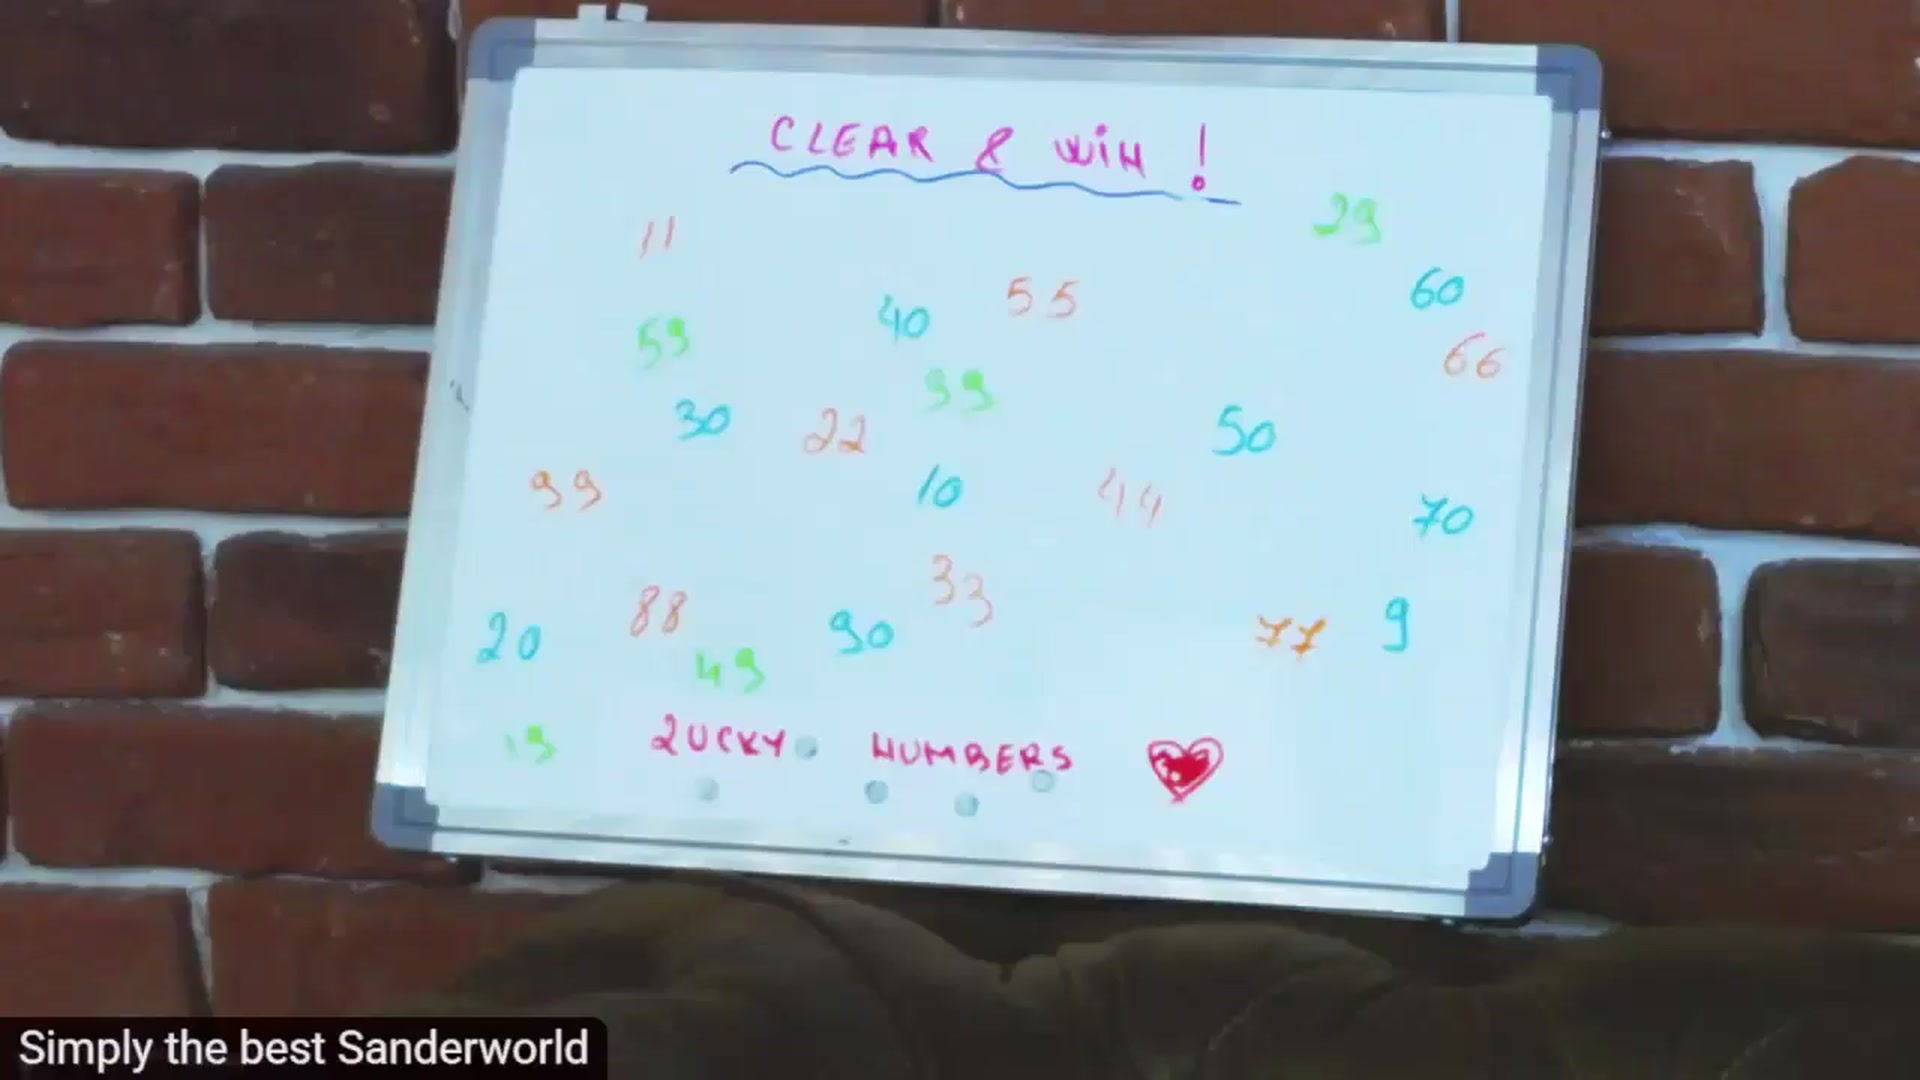 CLEAR & WiN !
29
11
60
55
40
59
66
30
22
50
99
10
44
70
33
88
20
90
77
9
49
19
LUCKY NUMBERS
Simply the best Sanderworld